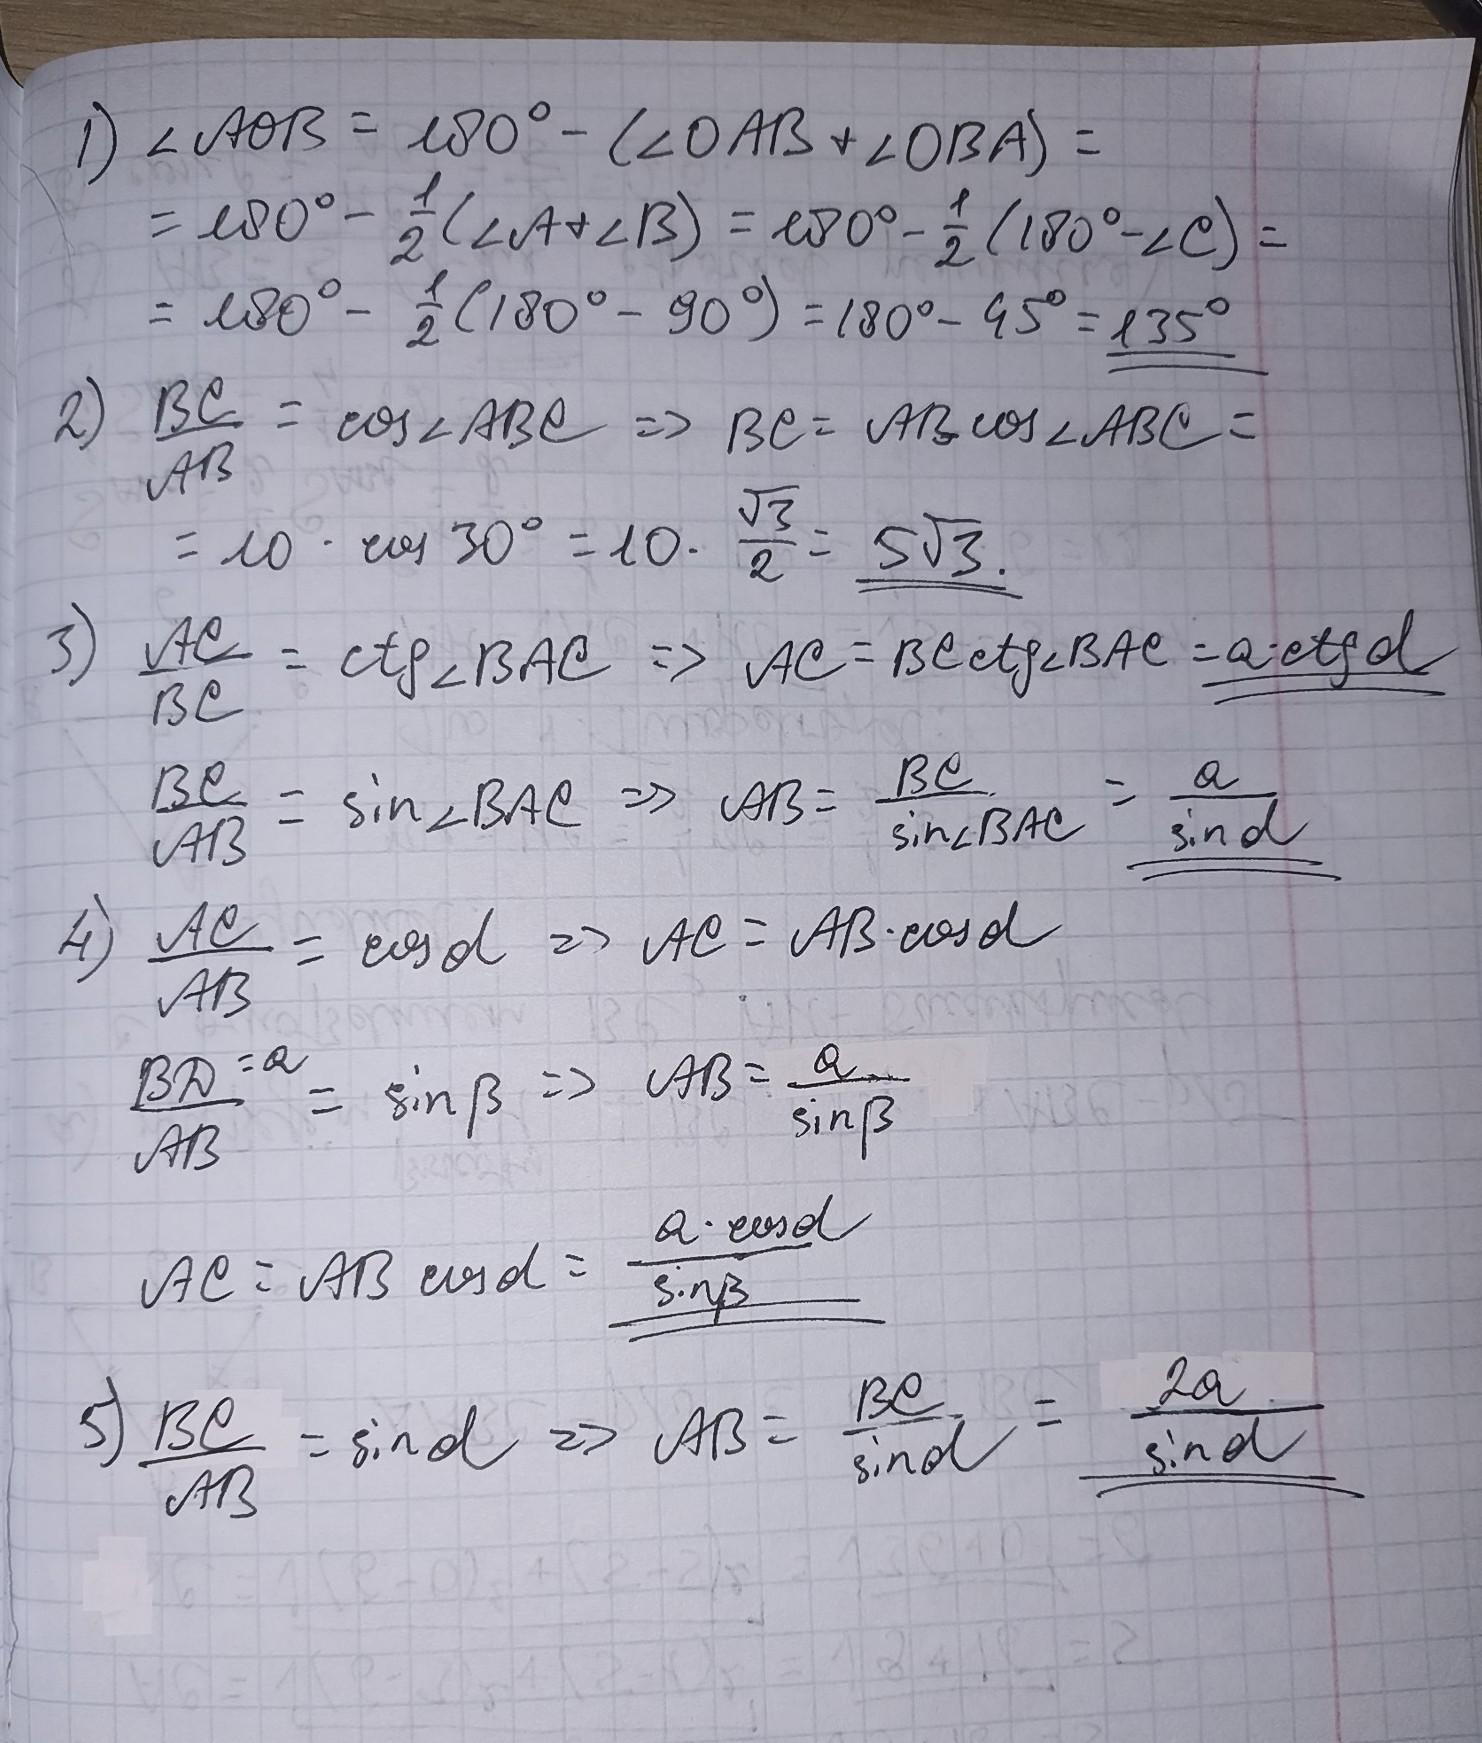 1) ∠AOB = 180° - (∠OAB + ∠OBA) =
= 180° - 1/2 (∠A + ∠B) = 180° - 1/2 (180° - ∠C) =
= 180° - 1/2 (180° - 90°) = 180° - 45° = 135°
2) BC/AB = cos∠ABC => BC = AB cos∠ABC =
= 10 · cos 30° = 10 · √3/2 = 5√3.
3) AC/BC = ctg∠BAC => AC = BC ctg∠BAC = a · ctg α
BC/AB = sin∠BAC => AB = BC/sin∠BAC = a/sin α
4) AC/AB = cos α => AC = AB · cos α
BD = a/AB = sin β => AB = a/sin β
AC = AB cos α = a · cos α/sin β
5) BC/AB = sin α => AB = BC/sin α = 2a/sin α